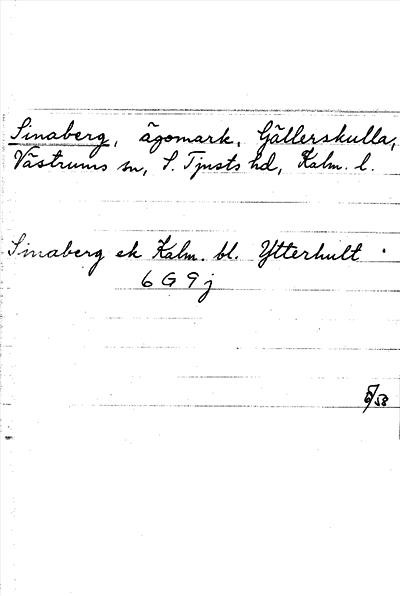 Sinaberg, ägomark, Gällerskulla,
Västrums sn, S. Tjusts hd, Kalm. l.
Sinaberg ek Kalm. bl. Ytterhult
6 G 9 j